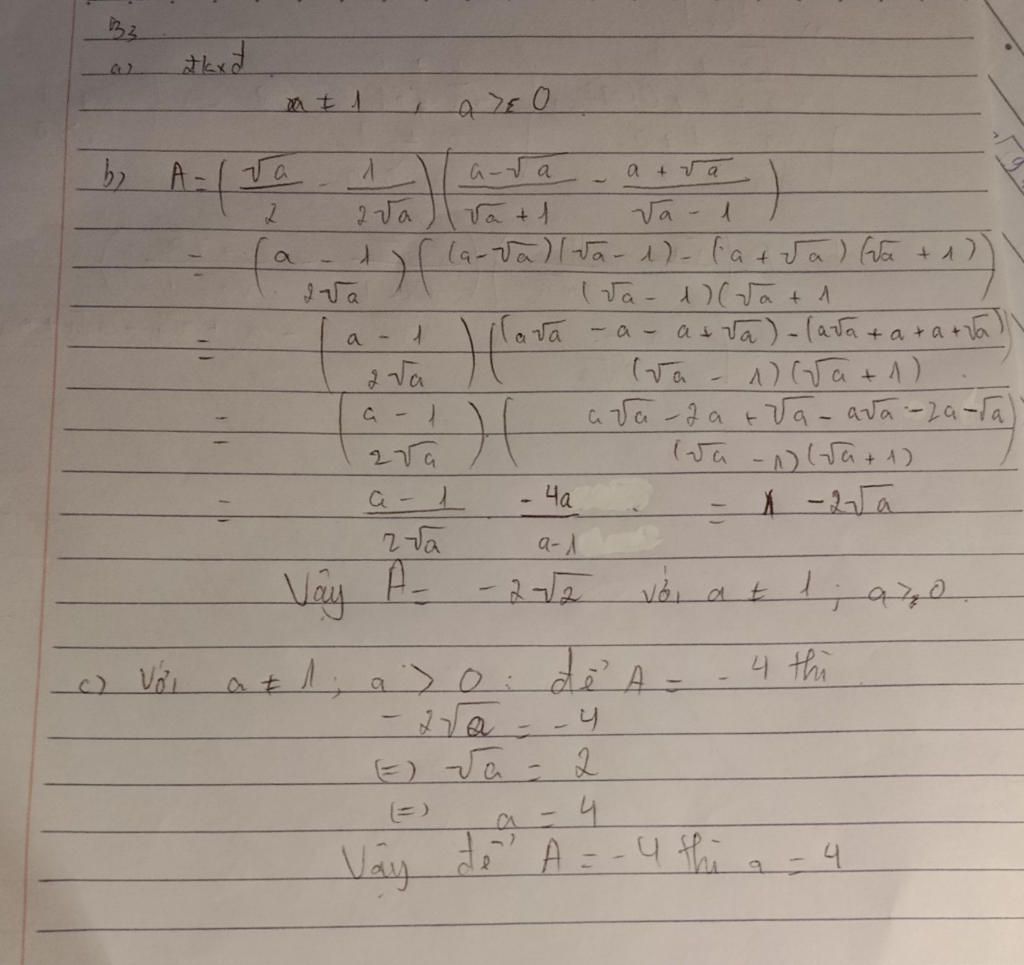 B3
a) đkxđ
a ≠ 1 , a > 0
b) A = (√a/2 - 1/2√a)(a-√a/√a+1 - a+√a/√a-1)
= (a-1/2√a)((a-√a)(√a-1)-(a+√a)(√a+1)/(√a-1)(√a+1)
= (a-1/2√a)((a√a-a-a+√a)-(a√a+a+a+√a)/(√a-1)(√a+1))
= (a-1/2√a).(a√a-2a+√a-a√a-2a-√a/(√a-1)(√a+1))
= a-1/2√a . -4a/a-1 = -2√a
Vậy A= -2√2 với a ≠ 1 ; a > 0.
c) Với a ≠ 1 ; a > 0 : để A = -4 thì
-2√a = -4
(=) √a = 2
(=) a = 4
Vậy để A = -4 thì a = 4